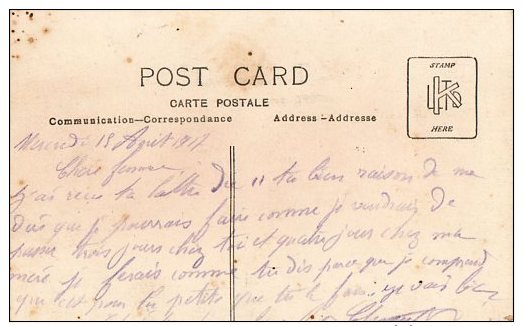 POST CARD
CARTE POSTALE
Communication—Correspondance
Address - Addresse
STAMP
HERE
Mercredi 15 Août 1917
Chère femme
j'ai reçu ta lettre du 11 tu bien raison de me
dire que je pourrais faire comme je voudrais de
passer trois jours chez toi et quatre jours chez ma
mère je ferais comme tu dis parce que je comprend
que c'est pour la petite que tu le fais je vais bien